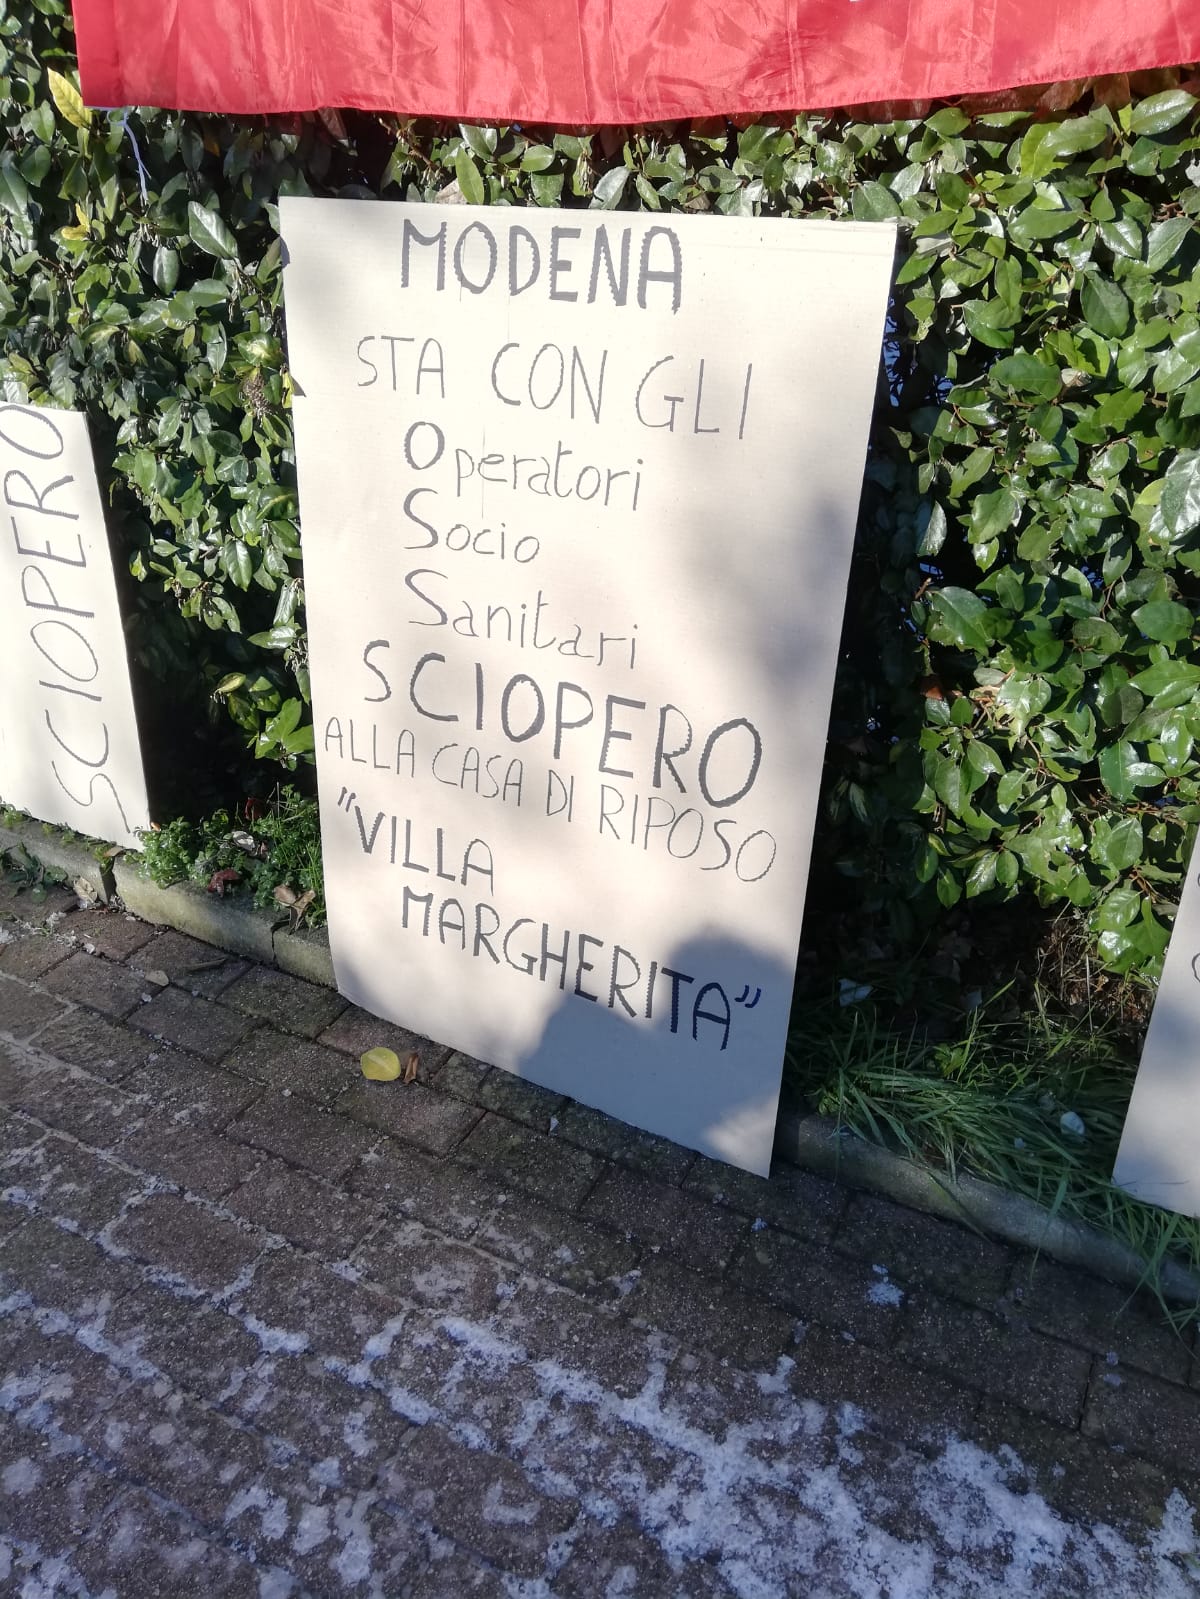 MODENA
STA CON GLI
Operatori
Socio
Sanitari
SCIOPERO
ALLA CASA DI RIPOSO
"VILLA
MARGHERITA"
SCIOPERO